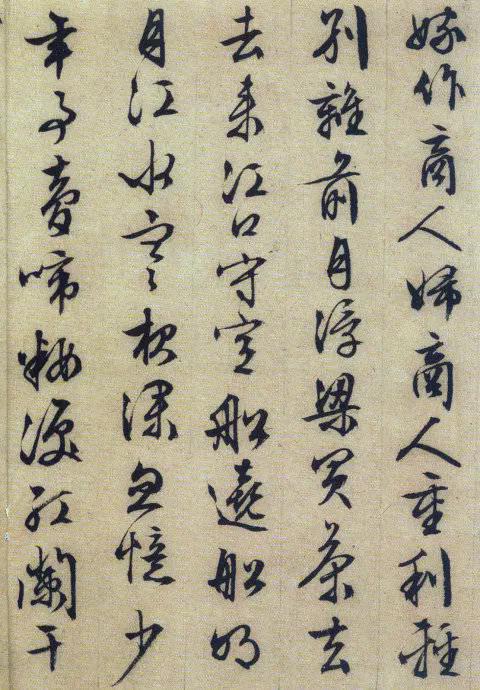 嫁作商人婦商人重利輕
別離前月浮梁買茶去
去来江口守空船遶船明
月江水寒夜深忽憶少
年事夢啼粧淚紅闌干